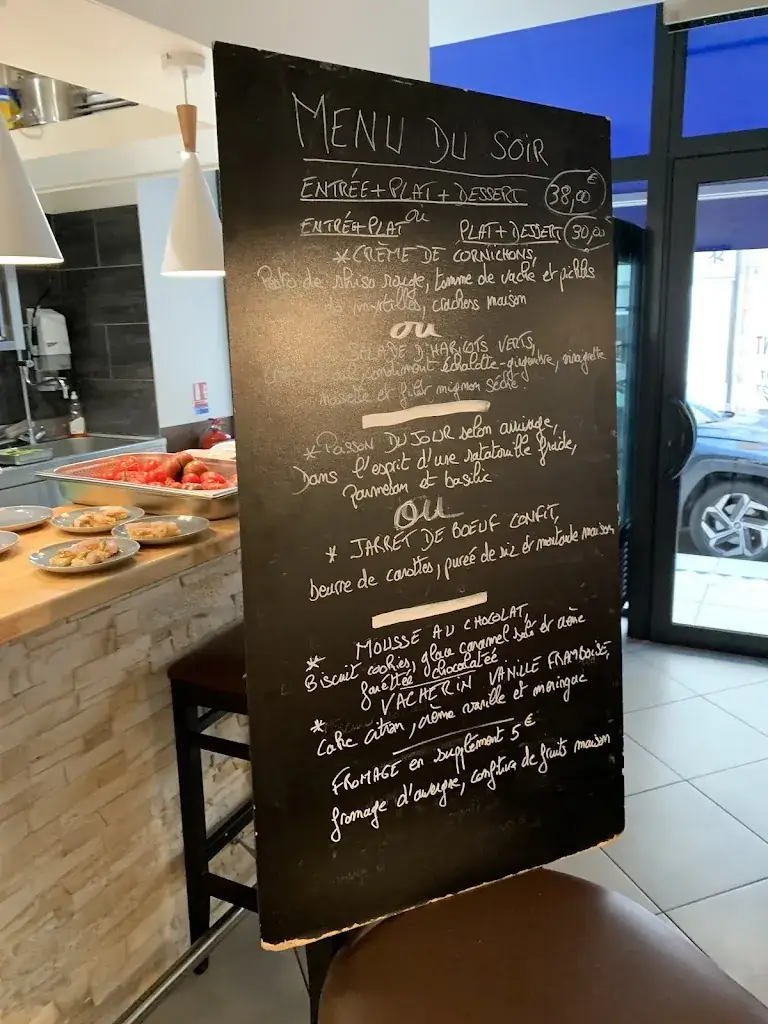 MENU DU SOIR
ENTRÉE+PLAT+DESSERT 38,00€
ou
ENTRÉ+PLAT PLAT+DESSERT 30,00
*CRÈME DE CORNICHONS,
Pesto de shiso rouge, tomme de vache et pickles
de myrtilles, crackers maison
ou
SALADE D'HARICOTS VERTS,
condiment échalotte-gingembre, vinaigrette
noisette et filet mignon séché.
*POISSON DU JOUR selon arrivage,
Dans l'esprit d'une ratatouille froide,
Parmesan et basilic
OU
* JARRET DE BOEUF CONFIT,
beurre de carottes, purée de riz et moutarde maison
* MOUSSE AU CHOCOLAT,
Biscuit cookies, glace caramel salé et crème
chocolatée
* VACHERIN VANILLE FRAMBOISE,
Cake citron, crème vanille et meringue
FROMAGE en supplément 5€
fromage d'auvergne, confiture de fruits maison